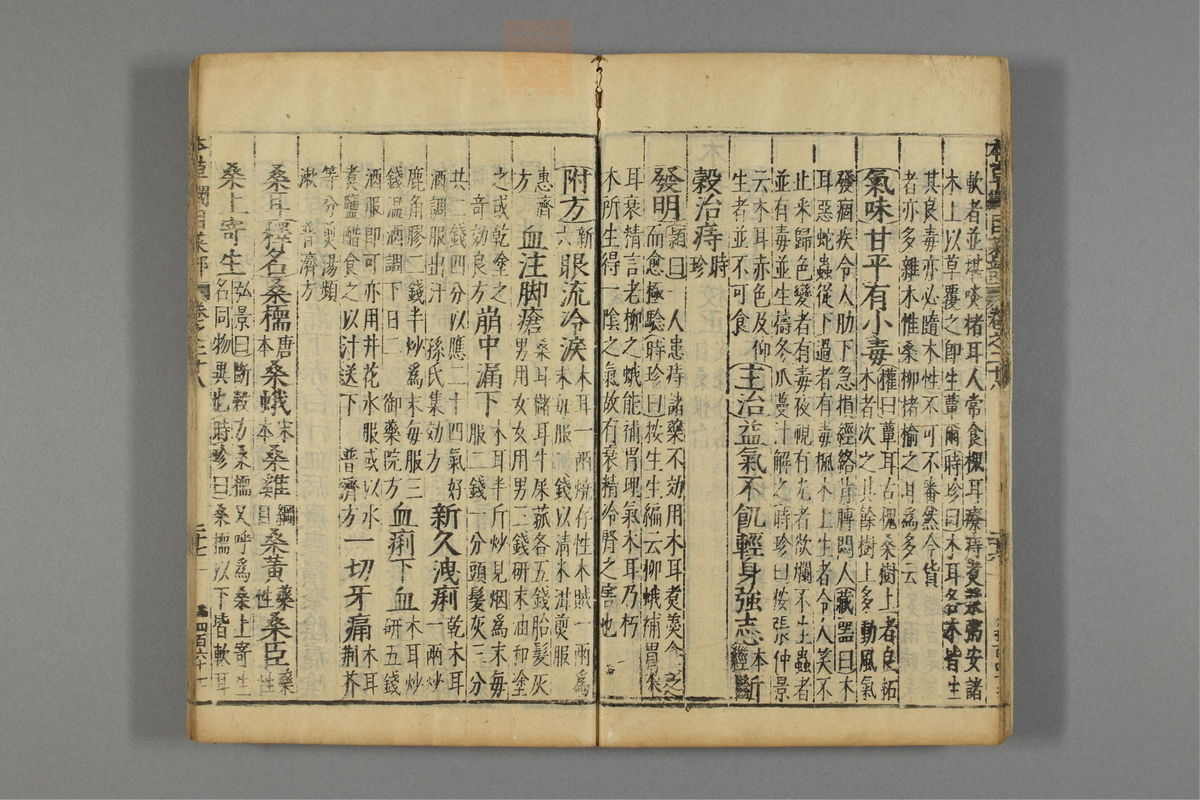 軟者並堪啖楮耳人常食槐耳療痔煮漿粥安諸
木上以草覆之即生蕈爾時珍曰木耳各木皆生
其良毒亦必隨木性不可不審然今皆
者亦多雜木惟桑柳楮榆之耳為多云
氣味甘平有小毒權曰蕈耳古槐桑樹上者良柘
木耳者次之其餘樹上多動風氣
發痼疾令人肋下急損經絡背膊悶人藏器曰木
耳惡蛇蟲從下過者有毒楓木上生者令人笑不
止采歸色變者有毒夜視有光者欲爛不生蟲者
並有毒並生擣冬瓜蔓汁解之時珍曰按張仲景
云木耳赤色及仰
生者並不可食主治益氣不飢輕身強志本經斷
穀治痔時珍
發明穎曰一人患痔諸藥不効用木耳煮羹食之
而愈極驗時珍曰按生生編云柳蛾補胃木
耳衰精言老柳之蛾能補胃理氣木耳乃朽
木所生得一陰之氣故有衰精冷腎之害也
附方新六眼流冷淚木耳一兩燒存性木賊一兩為
末每服二錢以清米泔煎服
惠濟方血注脚瘡桑耳楮耳牛屎菰各五錢胎髮灰
男用女女用男二錢研末油和塗
之或乾塗之奇効良方崩中漏下木耳半斤炒見烟為末每
服二錢一分頭髮灰三分
共二錢四分以應二十四氣好
酒調服出汗孫氏集効方新久洩痢乾木耳一兩炒
鹿角膠二錢半炒為末每服三
錢温酒調下日二御藥院方血痢下血木耳炒研五錢
酒服即可亦用井花水服或以水
煮鹽醋食之以汁送下普濟方一切牙痛木耳荆芥
等分煎湯頻
漱普濟方
桑耳釋名桑檽唐本桑蛾宋本桑雞綱目桑黄藥性桑臣藥性
桑上寄生弘景曰斷穀方桑檽又呼為桑上寄生
名同物異也時珍曰桑檽以下皆軟耳
本草綱目菜部
卷之二十八
二十七
四百六十七